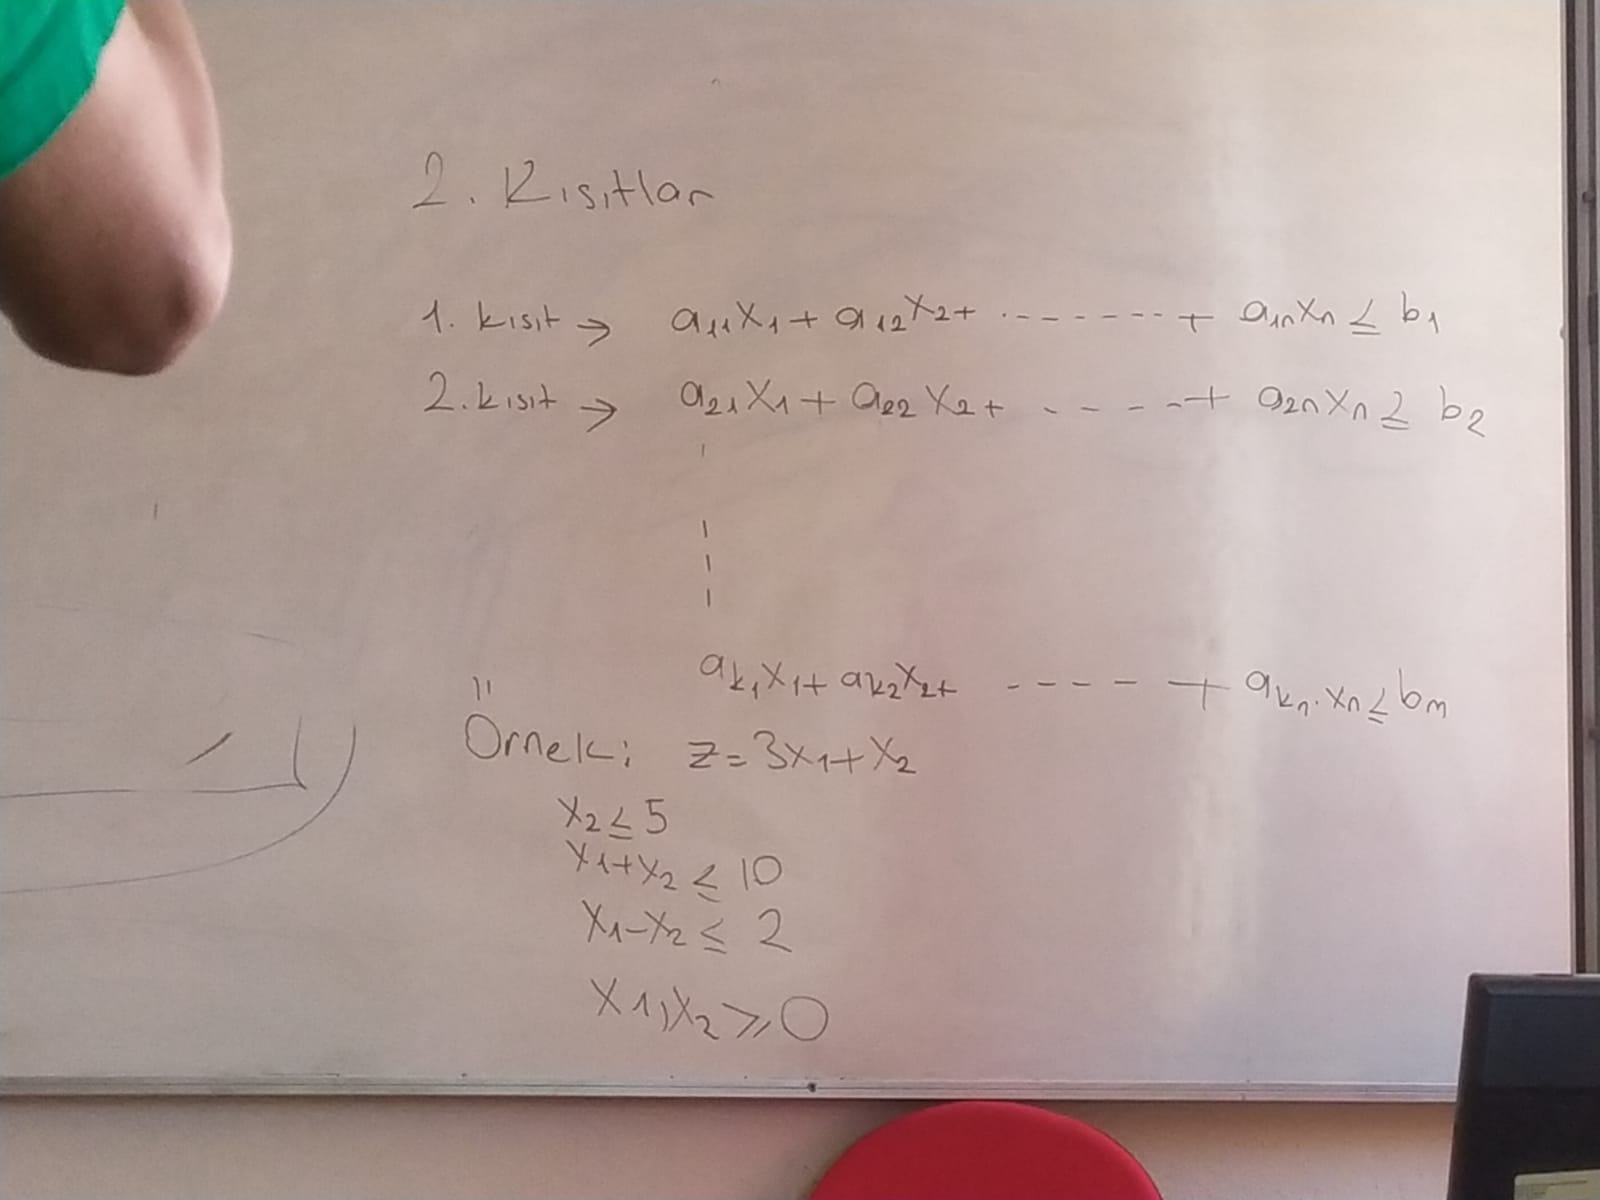 2. Kısıtlar
1. kısıt → a11x1 + a12x2 + ------- + a1nxn ≤ b1
2. kısıt → a21x1 + a22x2 + ---- + a2nxn ≥ b2
ak1x1 + ak2x2 + ----- + akn.xn ≤ bm
Örnek: z = 3x1 + x2
x2 ≤ 5
x1 + x2 ≤ 10
x1 - x2 ≤ 2
x1, x2 ≥ 0